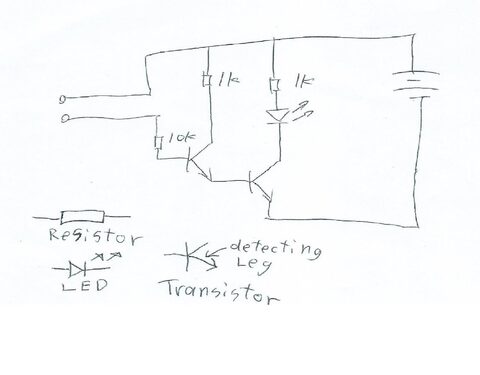 1k
1k
10k
Resistor
LED
detecting
Leg
Transistor